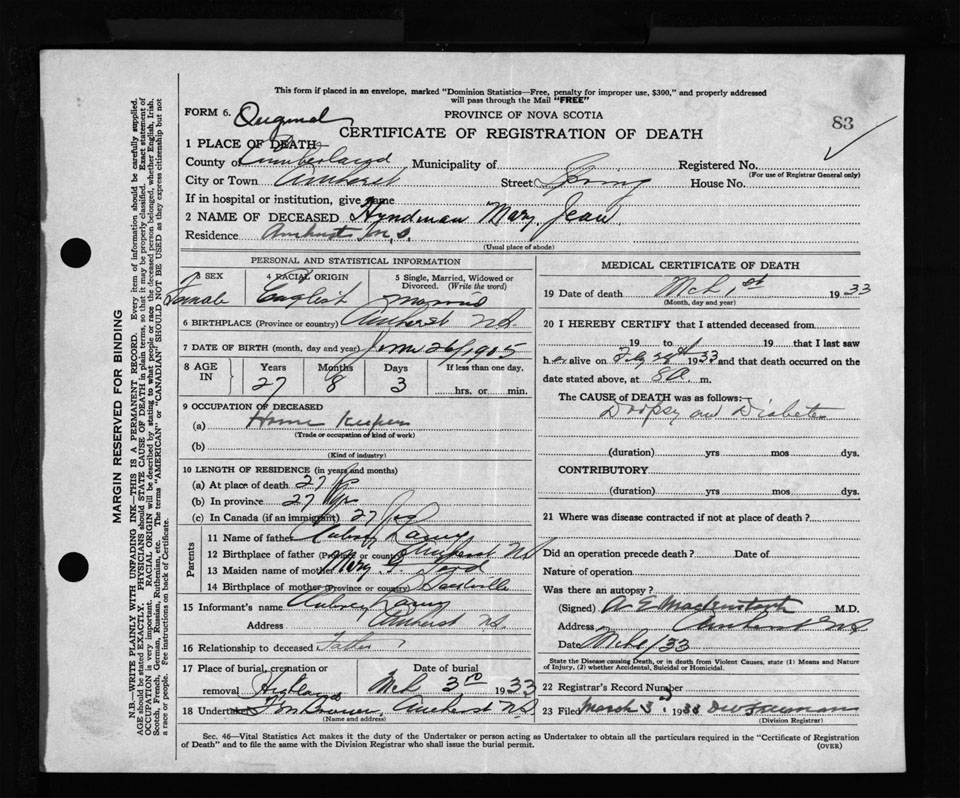 This form if placed in an envelope, marked "Dominion Statistics—Free, penalty for improper use, $300," and properly addressed
will pass through the Mail "FREE"
FORM 6. Original
PROVINCE OF NOVA SCOTIA
83
CERTIFICATE OF REGISTRATION OF DEATH
1 PLACE OF DEATH—
County of Cumberland Municipality of Registered No.
(For use of Registrar General only)
City or Town Amherst Street Spring House No.
If in hospital or institution, give name
2 NAME OF DECEASED Hyndman Mary Jean
Residence Amherst N.S.
(Usual place of abode)
PERSONAL AND STATISTICAL INFORMATION
3 SEX 4 RACIAL ORIGIN 5 Single, Married, Widowed or Divorced. (Write the word)
Female English Married
6 BIRTHPLACE (Province or country) Amherst N.S.
7 DATE OF BIRTH (month, day and year) June 26/1905
8 AGE IN Years Months Days If less than one day,
27 8 3 hrs. or min.
9 OCCUPATION OF DECEASED
(a) Home Keeper
(Trade or occupation of kind of work)
(b)
(Kind of industry)
10 LENGTH OF RESIDENCE (in years and months)
(a) At place of death 27 yrs
(b) In province 27 yrs
(c) In Canada (if an immigrant) 27 yrs
Parents
11 Name of father Aubrey
12 Birthplace of father (Province or country) Amherst N.S.
13 Maiden name of mother Mary
14 Birthplace of mother (Province or country) Sackville
15 Informant's name Aubrey
Address Amherst N.S.
16 Relationship to deceased Father
17 Place of burial, cremation or removal Date of burial
Highland Mch 3rd 1933
18 Undertaker Amherst N.S.
(Name and address)
MEDICAL CERTIFICATE OF DEATH
19 Date of death Mch 1st 1933
(Month, day and year)
20 I HEREBY CERTIFY that I attended deceased from
19 to 19 that I last saw
her alive on 1933 and that death occurred on the
date stated above, at 8 a. m.
The CAUSE of DEATH was as follows:—
Dropsy and Diabetes
(duration) yrs mos dys.
CONTRIBUTORY
(duration) yrs mos dys.
21 Where was disease contracted if not at place of death?
Did an operation precede death? Date of
Nature of operation
Was there an autopsy?
(Signed) A E Mackintosh M.D.
Address Amherst N.S.
Date Mch 1/33
State the Disease causing Death, or in death from Violent Causes, state (1) Means and Nature
of Injury, (2) whether Accidental, Suicidal or Homicidal.
22 Registrar's Record Number
23 Filed March 3 1933
(Division Registrar)
Sec. 46—Vital Statistics Act makes it the duty of the Undertaker or person acting as Undertaker to obtain all the particulars required in the "Certificate of Registration
of Death" and to file the same with the Division Registrar who shall issue the burial permit.
(OVER)
MARGIN RESERVED FOR BINDING
N.B.—WRITE PLAINLY WITH UNFADING INK—THIS IS A PERMANENT RECORD. Every item of information should be carefully supplied.
AGE should be stated EXACTLY. PHYSICIANS should STATE CAUSE OF DEATH in plain terms, so that it may be properly classified. Exact statement of
OCCUPATION is very important. RACIAL ORIGIN will be described by stating to what people or race the deceased person belonged, whether English, Irish,
Scotch, French, German, Russian, Ruthenian, etc. The terms "AMERICAN" or "CANADIAN" SHOULD NOT BE USED as they express citizenship but not
a race or people. See instructions on back of Certificate.